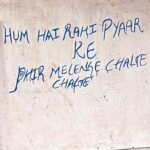 HUM HAI RAHI PYAAR
KE
PHIR MELENGE CHALTE
CHALTE